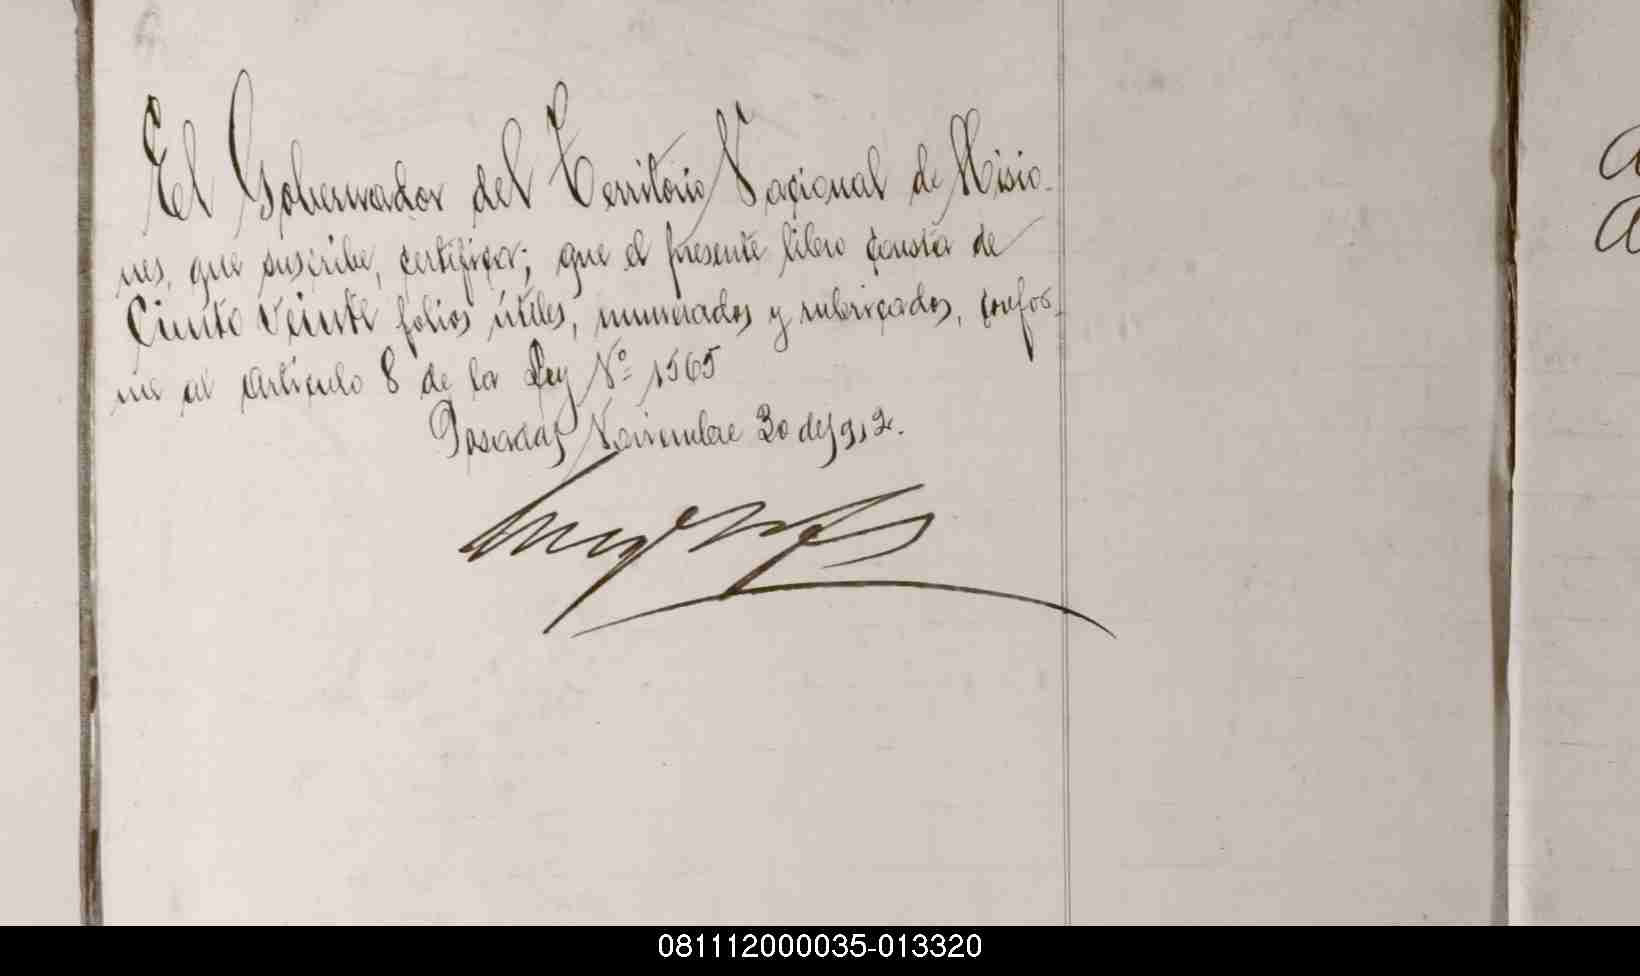 El Gobernador del Territorio Nacional de Misio-
nes, que suscribe, certifica; que el presente libro consta de
Ciento veinte folios útiles, numerados y rubricados, confor-
me al artículo 8 de la Ley Nº 1565
Posadas Noviembre 30 de 1912.
081112000035-013320